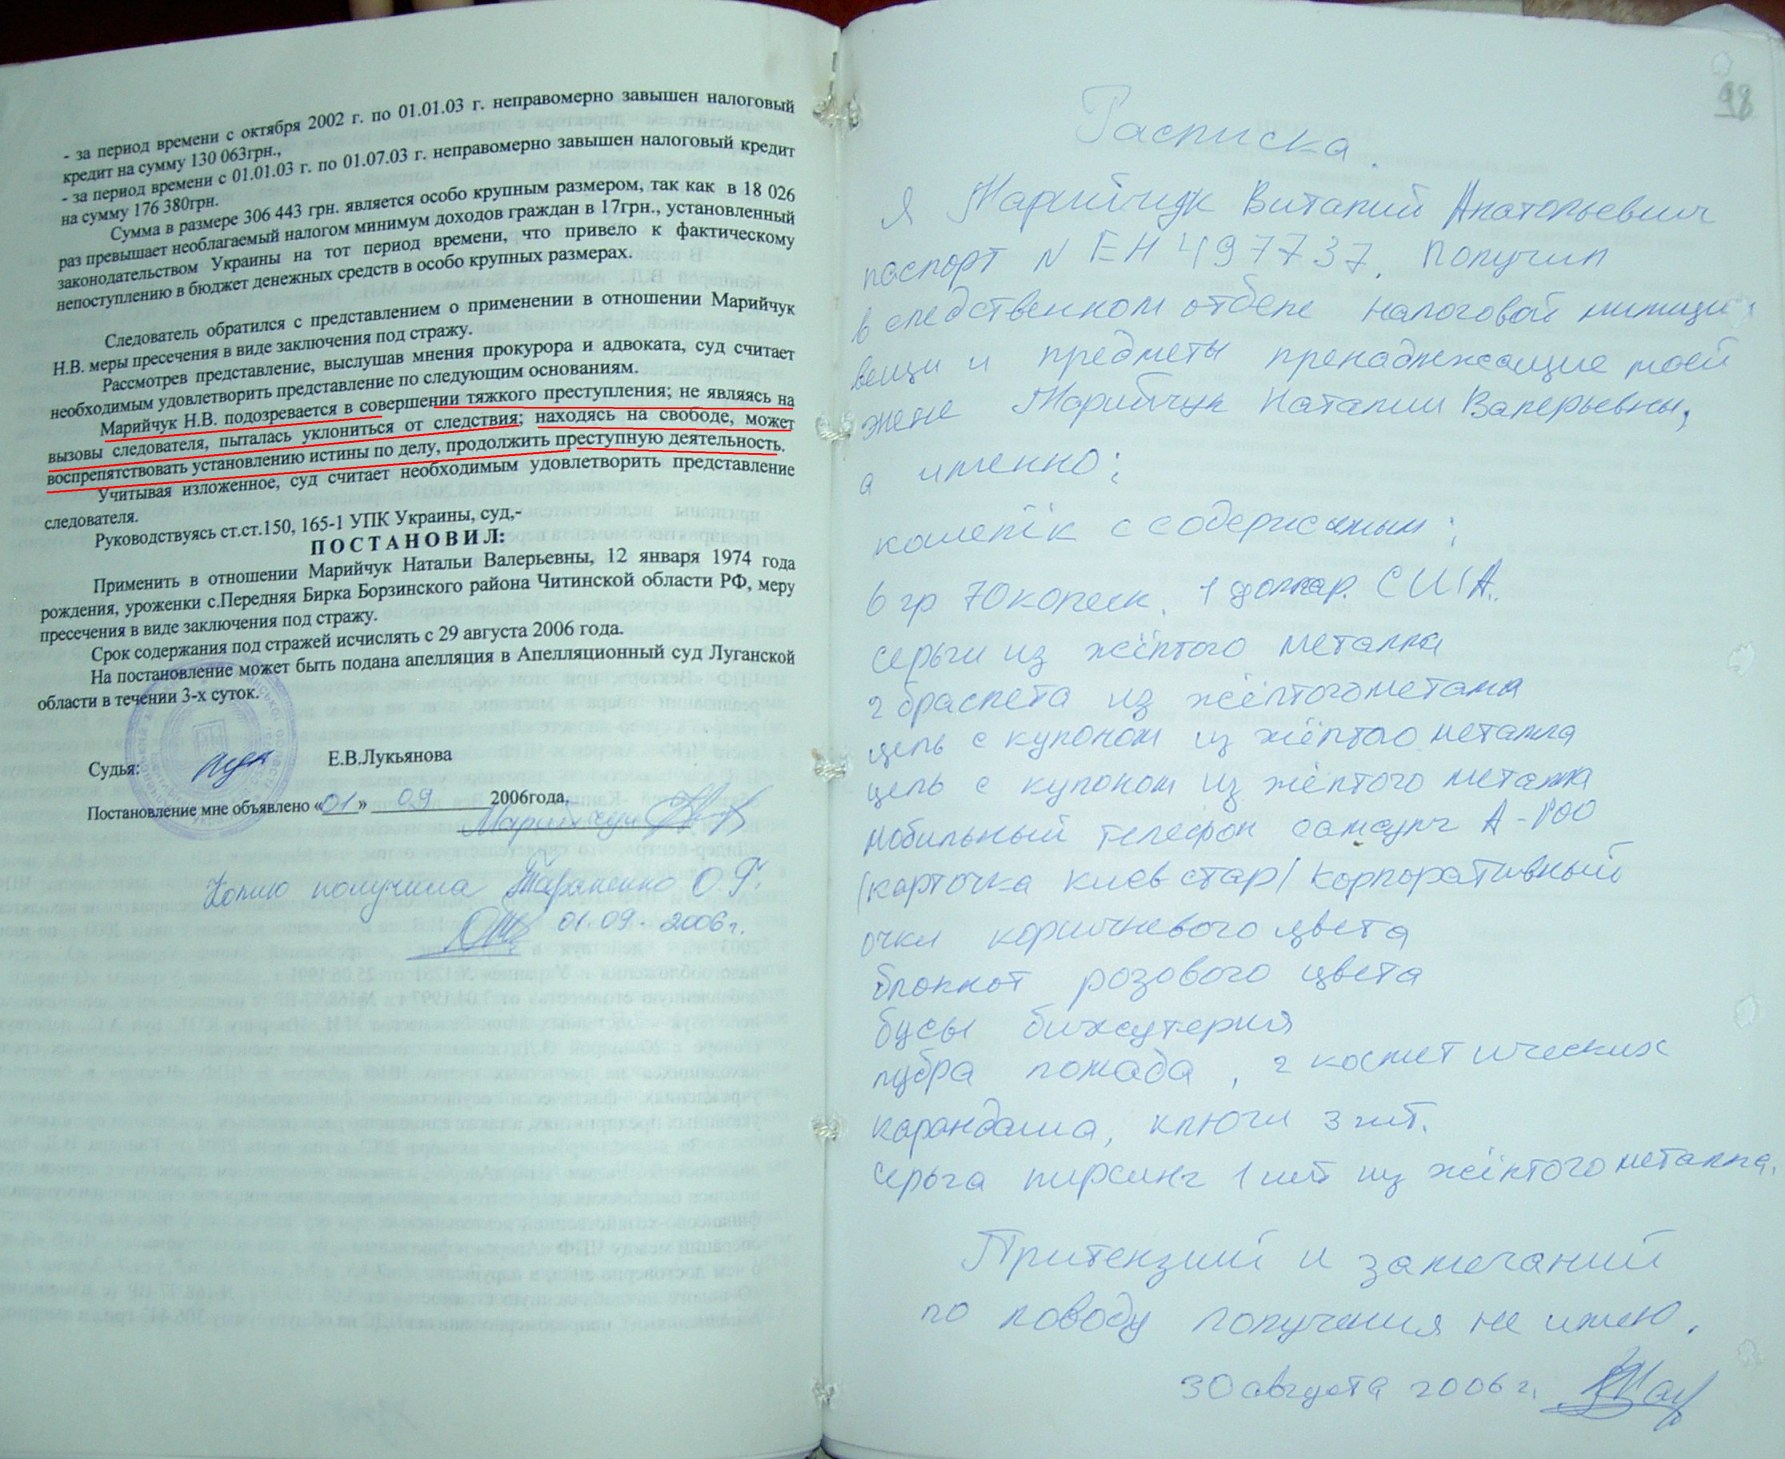 - за период времени с октября 2002 г. по 01.01.03 г. неправомерно завышен налоговый
кредит на сумму 130 063грн.,
- за период времени с 01.01.03 г. по 01.07.03 г. неправомерно завышен налоговый кредит
на сумму 176 380грн.
Сумма в размере 306 443 грн. является особо крупным размером, так как в 18 026
раз превышает необлагаемый налогом минимум доходов граждан в 17грн., установленный
законодательством Украины на тот период времени, что привело к фактическому
непоступлению в бюджет денежных средств в особо крупных размерах.
Следователь обратился с представлением о применении в отношении Марийчук
Н.В. меры пресечения в виде заключения под стражу.
Рассмотрев представление, выслушав мнения прокурора и адвоката, суд считает
необходимым удовлетворить представление по следующим основаниям.
Марийчук Н.В. подозревается в совершении тяжкого преступления; не являясь на
вызовы следователя, пыталась уклониться от следствия; находясь на свободе, может
воспрепятствовать установлению истины по делу, продолжить преступную деятельность.
Учитывая изложенное, суд считает необходимым удовлетворить представление
следователя.
Руководствуясь ст.ст.150, 165-1 УПК Украины, суд,-
П О С Т А Н О В И Л:
Применить в отношении Марийчук Натальи Валерьевны, 12 января 1974 года
рождения, уроженки с.Передняя Бирка Борзинского района Читинской области РФ, меру
пресечения в виде заключения под стражу.
Срок содержания под стражей исчислять с 29 августа 2006 года.
На постановление может быть подана апелляция в Апелляционный суд Луганской
области в течении 3-х суток.
Судья: Е.В.Лукьянова
Постановление мне объявлено «01» 09 2006года,
Марийчук
Копию получила Тараненко О.Г.
01.09.2006г.
98
Расписка.
Я Марийчук Виталий Анатольевич
паспорт N ЕН 497737. Получил
в следственном отделе налоговой милиции
вещи и предметы пренадлжащие моей
жене Марийчук Наталии Валерьевны,
а именно:
кошелёк с содержимым:
6 гр 70 копеек. 1 доллар. США.
серьги из жёлтого металла
2 браслета из жёлтого метала
цепь с кулоном из жёлтого металла
цепь с кулоном из жёлтого металла
мобильный телефон самсунг А-800
(карточка киевстар) корпоративный
очки коричневого цвета
блокнот розового цвета
бусы бижутерия
губна помада, 2 косметических
карандаша, ключи 3 шт.
серьга пирсинг 1 шт из жёлтого металла.
Притензий и замечаний
по поводу получения не имею.
30 августа 2006 г.